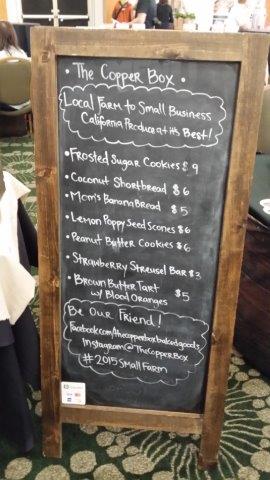 • The Copper Box •
Local Farm to Small Business
California Produce at its Best!
• Frosted Sugar Cookies $9
• Coconut Shortbread $6
• Mom's Banana Bread $5
• Lemon Poppy Seed Scones $6
• Peanut Butter Cookies $6
• Strawberry Streusel Bar $3
• Brown Butter Tart
w/ Blood Oranges $5
Be Our Friend!
Facebook.com/thecopperboxbakedgoods
Instagram@TheCopperBox
#2015SmallFarm